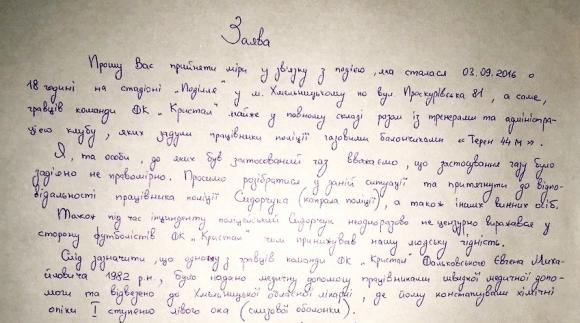 Заява
Прошу Вас прийняти міри у зв'язку з подією, яка сталася 03.09.2016 о
18 годині на стадіоні „Поділля" у м. Хмельницькому по вул. Проскурівська 81, а саме,
гравців команди ФК „Кристал" майже у повному складі разом із тренерами та адміністра-
цією клубу, яких задули працівники поліції газовими балончиками «Терен 4М».
Я, та особи, до яких був застосований газ вважаємо, що застосування газу було
задіяно не правомірно. Просимо розібратися у даній ситуації та притягнути до відпо-
відальності працівника поліції Сидорчука (капрала поліції), а також інших винних осіб.
Також під час інциденту поліцейський Сидорчук неодноразово не цензурно виражався у
сторону футболістів ФК „Кристал" чим принижував нашу людську гідність.
Слід зазначити, що одному з гравців команди ФК „Кристал" Фальковського Євгена Миха-
йловича 1982 р.н., було надано медичну допомогу працівниками швидкої медичної допо-
моги та відвезено до Хмельницької обласної лікарні, де йому констатували хімічні
опіки I ступеню лівого ока (слизової оболонки).